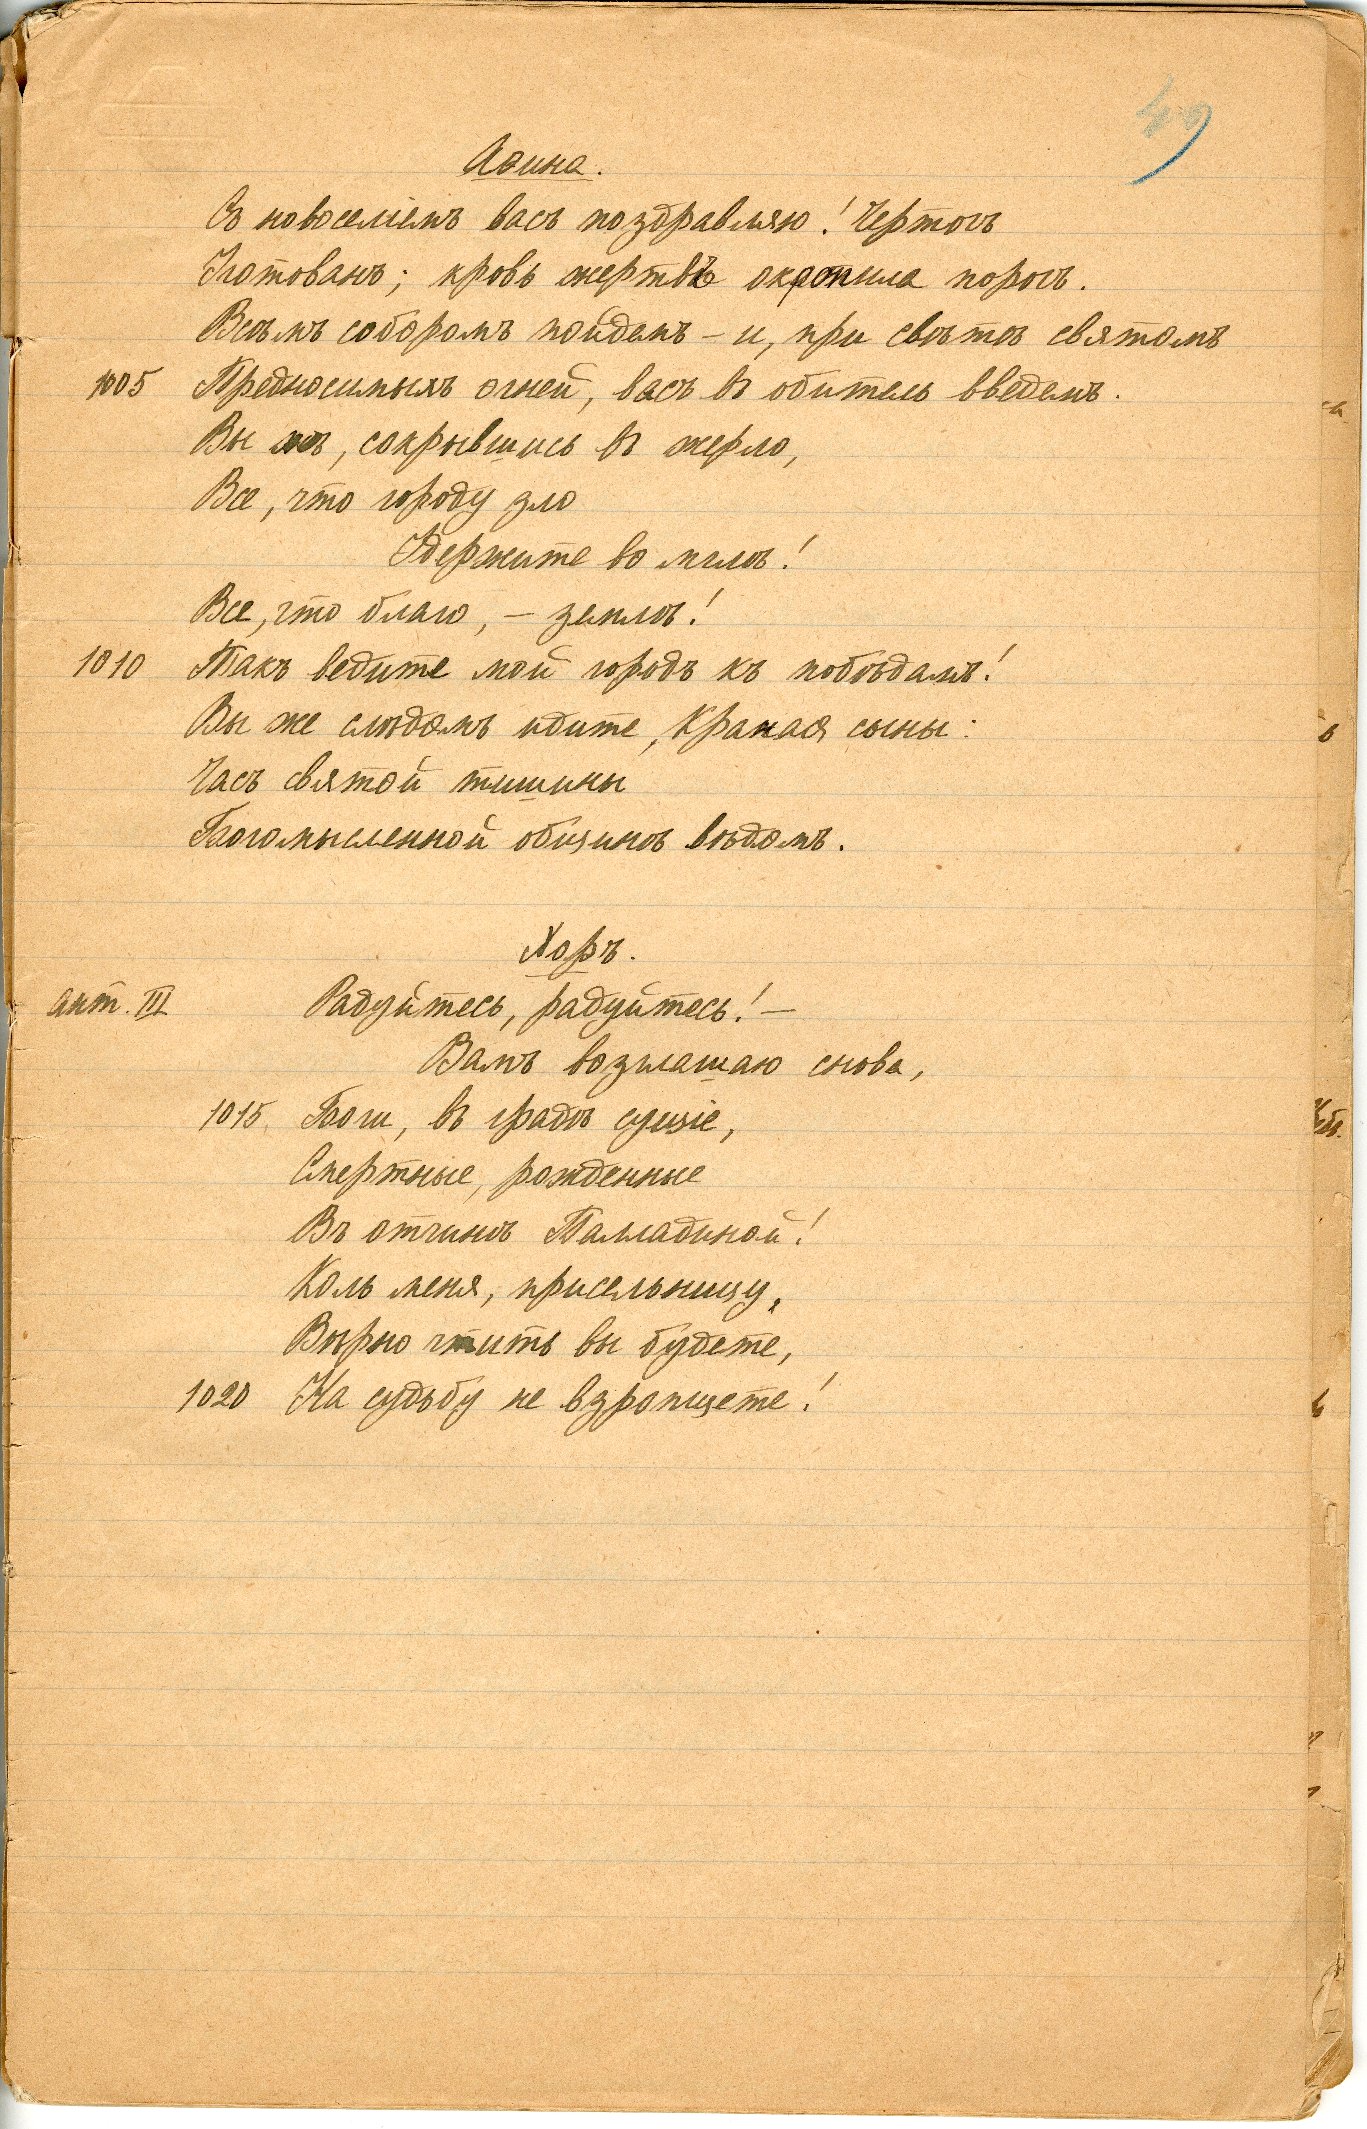 49
Аѳина.
Съ новоселіемъ васъ поздравляю! Чертогъ
Уготованъ; кровь жертвъ окропила порогъ.
Всѣмъ соборомъ пойдемъ – и, при свѣтѣ святомъ
1005 Предносимыхъ огней, васъ въ обитель введемъ.
Вы жъ, сокрывшись въ жерло,
Все, что городу зло
Удержите во мглѣ!
Все, что благо, – землѣ!
1010 Такъ ведите мой городъ къ побѣдамъ!
Вы же слѣдомъ идите, Краная сыны:
Часъ святой тишины
Богомысленной общинѣ вѣдомъ.
Хоръ.
ант. III Радуйтесь, радуйтесь! –
Вамъ возглашаю снова,
1015 Боги, въ градѣ сущіе,
Смертные, рожденные
Въ отчинѣ Палладиной!
Коль меня, присельницу,
Вѣрно чтить вы будете,
1020 На судьбу не взропщете!